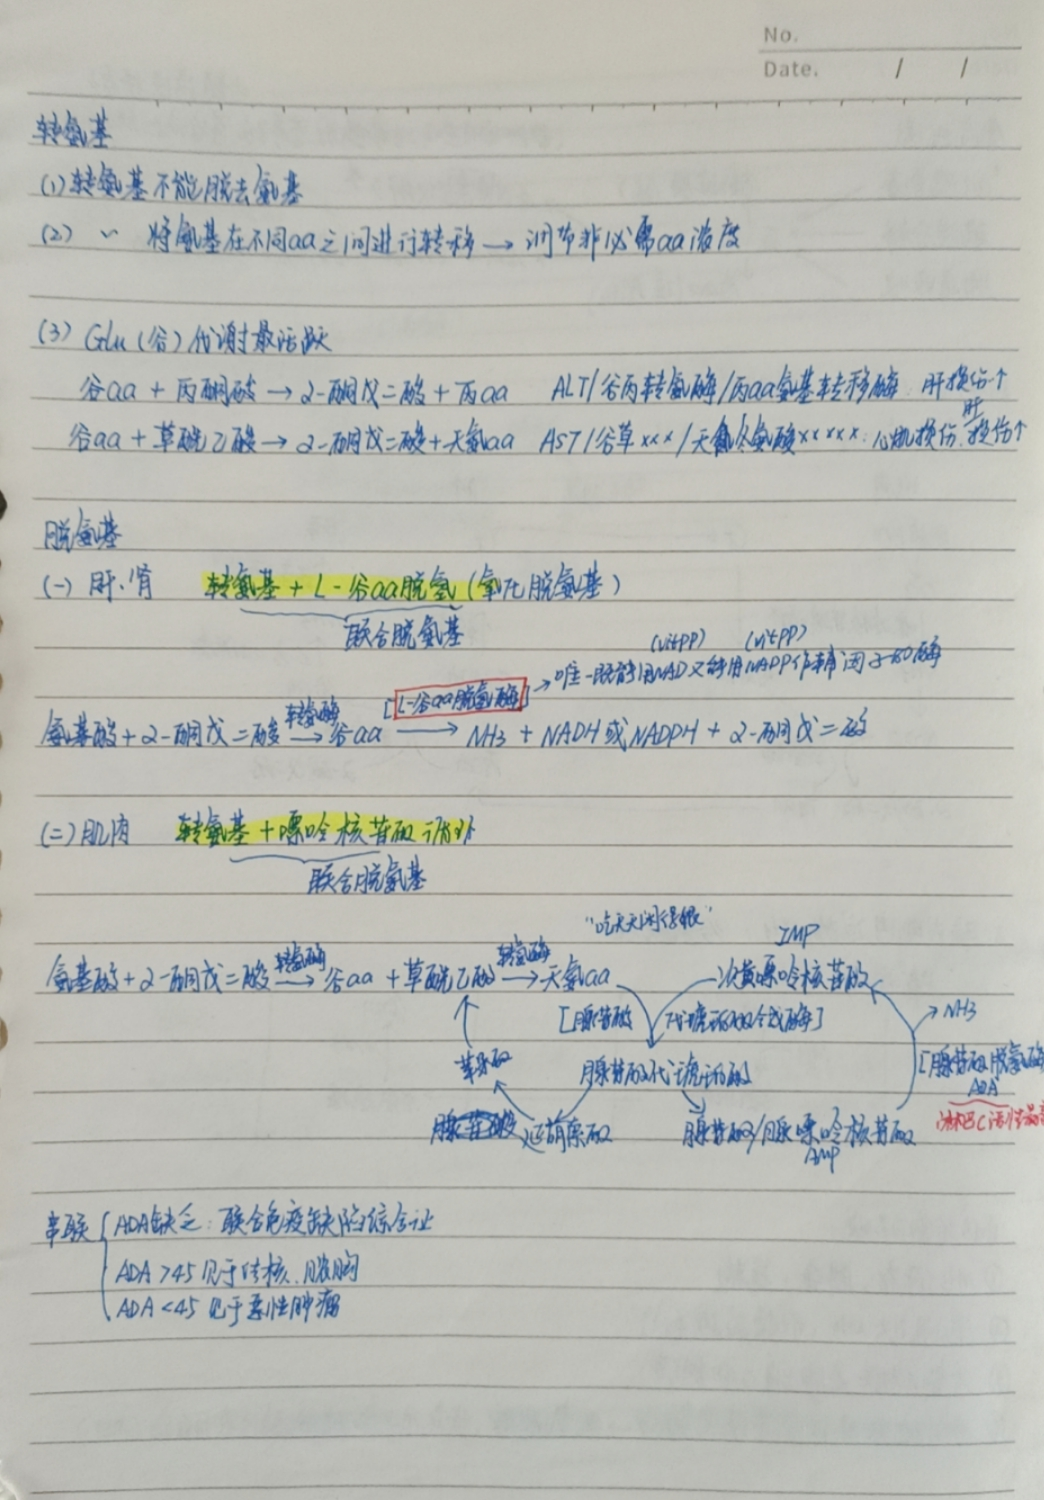 No.
Date. / /
转氨基
(1) 转氨基不能脱去氨基
(2) 〃 将氨基在不同aa之间进行转移→调节非必需aa浓度
(3) Glu(谷)代谢最活跃
谷aa + 丙酮酸 → 2-酮戊二酸 + 丙aa ALT/谷丙转氨酶/丙aa氨基转移酶 肝损伤↑
谷aa + 草酰乙酸 → 2-酮戊二酸+天氨aa AST/谷草xxx/天冬氨酸xxxxx:心肌损伤.肝损伤↑
脱氨基
(一) 肝、肾 转氨基 + L-谷aa脱氢(氧化脱氨基)
联合脱氨基
(vitPP) (vitPP)
[L-谷aa脱氢酶] → 唯一既能用NAD又能用NADP作辅因子的酶
氨基酸 + 2-酮戊二酸 转氨酶→ 谷aa → NH3 + NADH或NADPH + 2-酮戊二酸
(二) 肌肉 转氨基+嘌呤核苷酸循环
联合脱氨基
"吃天天闲得狠" IMP
氨基酸+2-酮戊二酸 转氨酶→ 谷aa + 草酰乙酸 转氨酶→ 天氨aa 次黄嘌呤核苷酸
[腺苷酸代琥珀酸合成酶] →NH3
苹果酸 腺苷酸代琥珀酸 [腺苷酸脱氨酶
ADA
延胡索酸 腺苷酸/腺嘌呤核苷酸
AMP
串联 { ADA缺乏:联合免疫缺陷综合征
ADA >45 见于结核.脓胸
ADA <45 见于恶性肿瘤